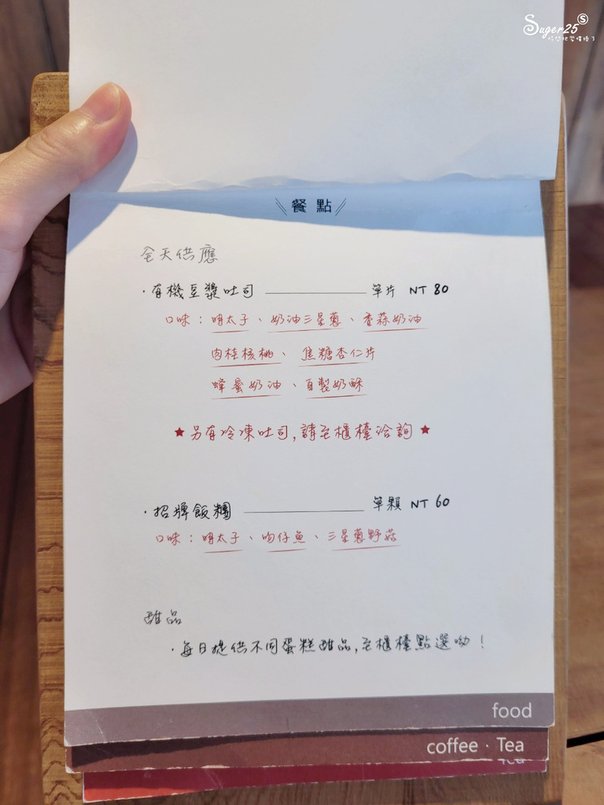 Suger25
餐 點
全天供應
· 有機豆漿吐司 ———— 單片 NT 80
口味：明太子、奶油三星蔥、香蒜奶油
肉桂核桃、焦糖杏仁片
蜂蜜奶油、自製奶酥
★ 另有冷凍吐司，請至櫃檯洽詢 ★
· 招牌飯糰 ———— 單顆 NT 60
口味：明太子、吻仔魚、三星蔥野菇
甜品
· 每日提供不同蛋糕甜品，至櫃檯點選呦！
food
coffee · Tea